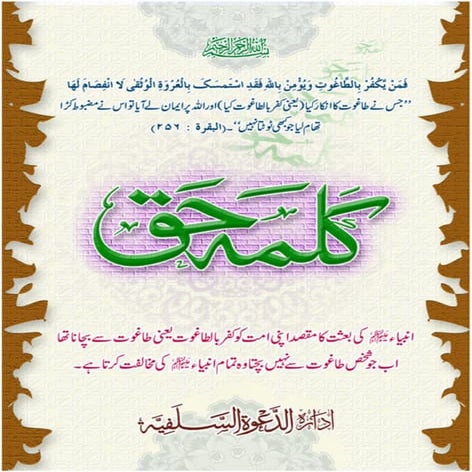 بسم الله الرحمن الرحيم
فَمَنْ يَّكْفُرْ بِالطَّاغُوْتِ وَيُؤْمِنْ بِاللهِ فَقَدِ اسْتَمْسَكَ بِالْعُرْوَةِ الْوُثْقٰى لَا انْفِصَامَ لَهَا
’’جس نے طاغوت کا انکار کیا (یعنی کفر بالطاغوت کیا) اور اللہ پر ایمان لے آیا تو اس نے مضبوط کڑا
تھام لیا جو کبھی ٹوٹتا نہیں‘‘۔ (البقرة : ٢٥٦)
کلمہ حق
انبیاء ﷺ کی بعثت کا مقصد اپنی امت کو کفر بالطاغوت یعنی طاغوت سے بچانا تھا
اب جو شخص طاغوت سے نہیں بچتا وہ تمام انبیاء ﷺ کی مخالفت کرتا ہے۔
ادارہ الدعوة السلفیہ